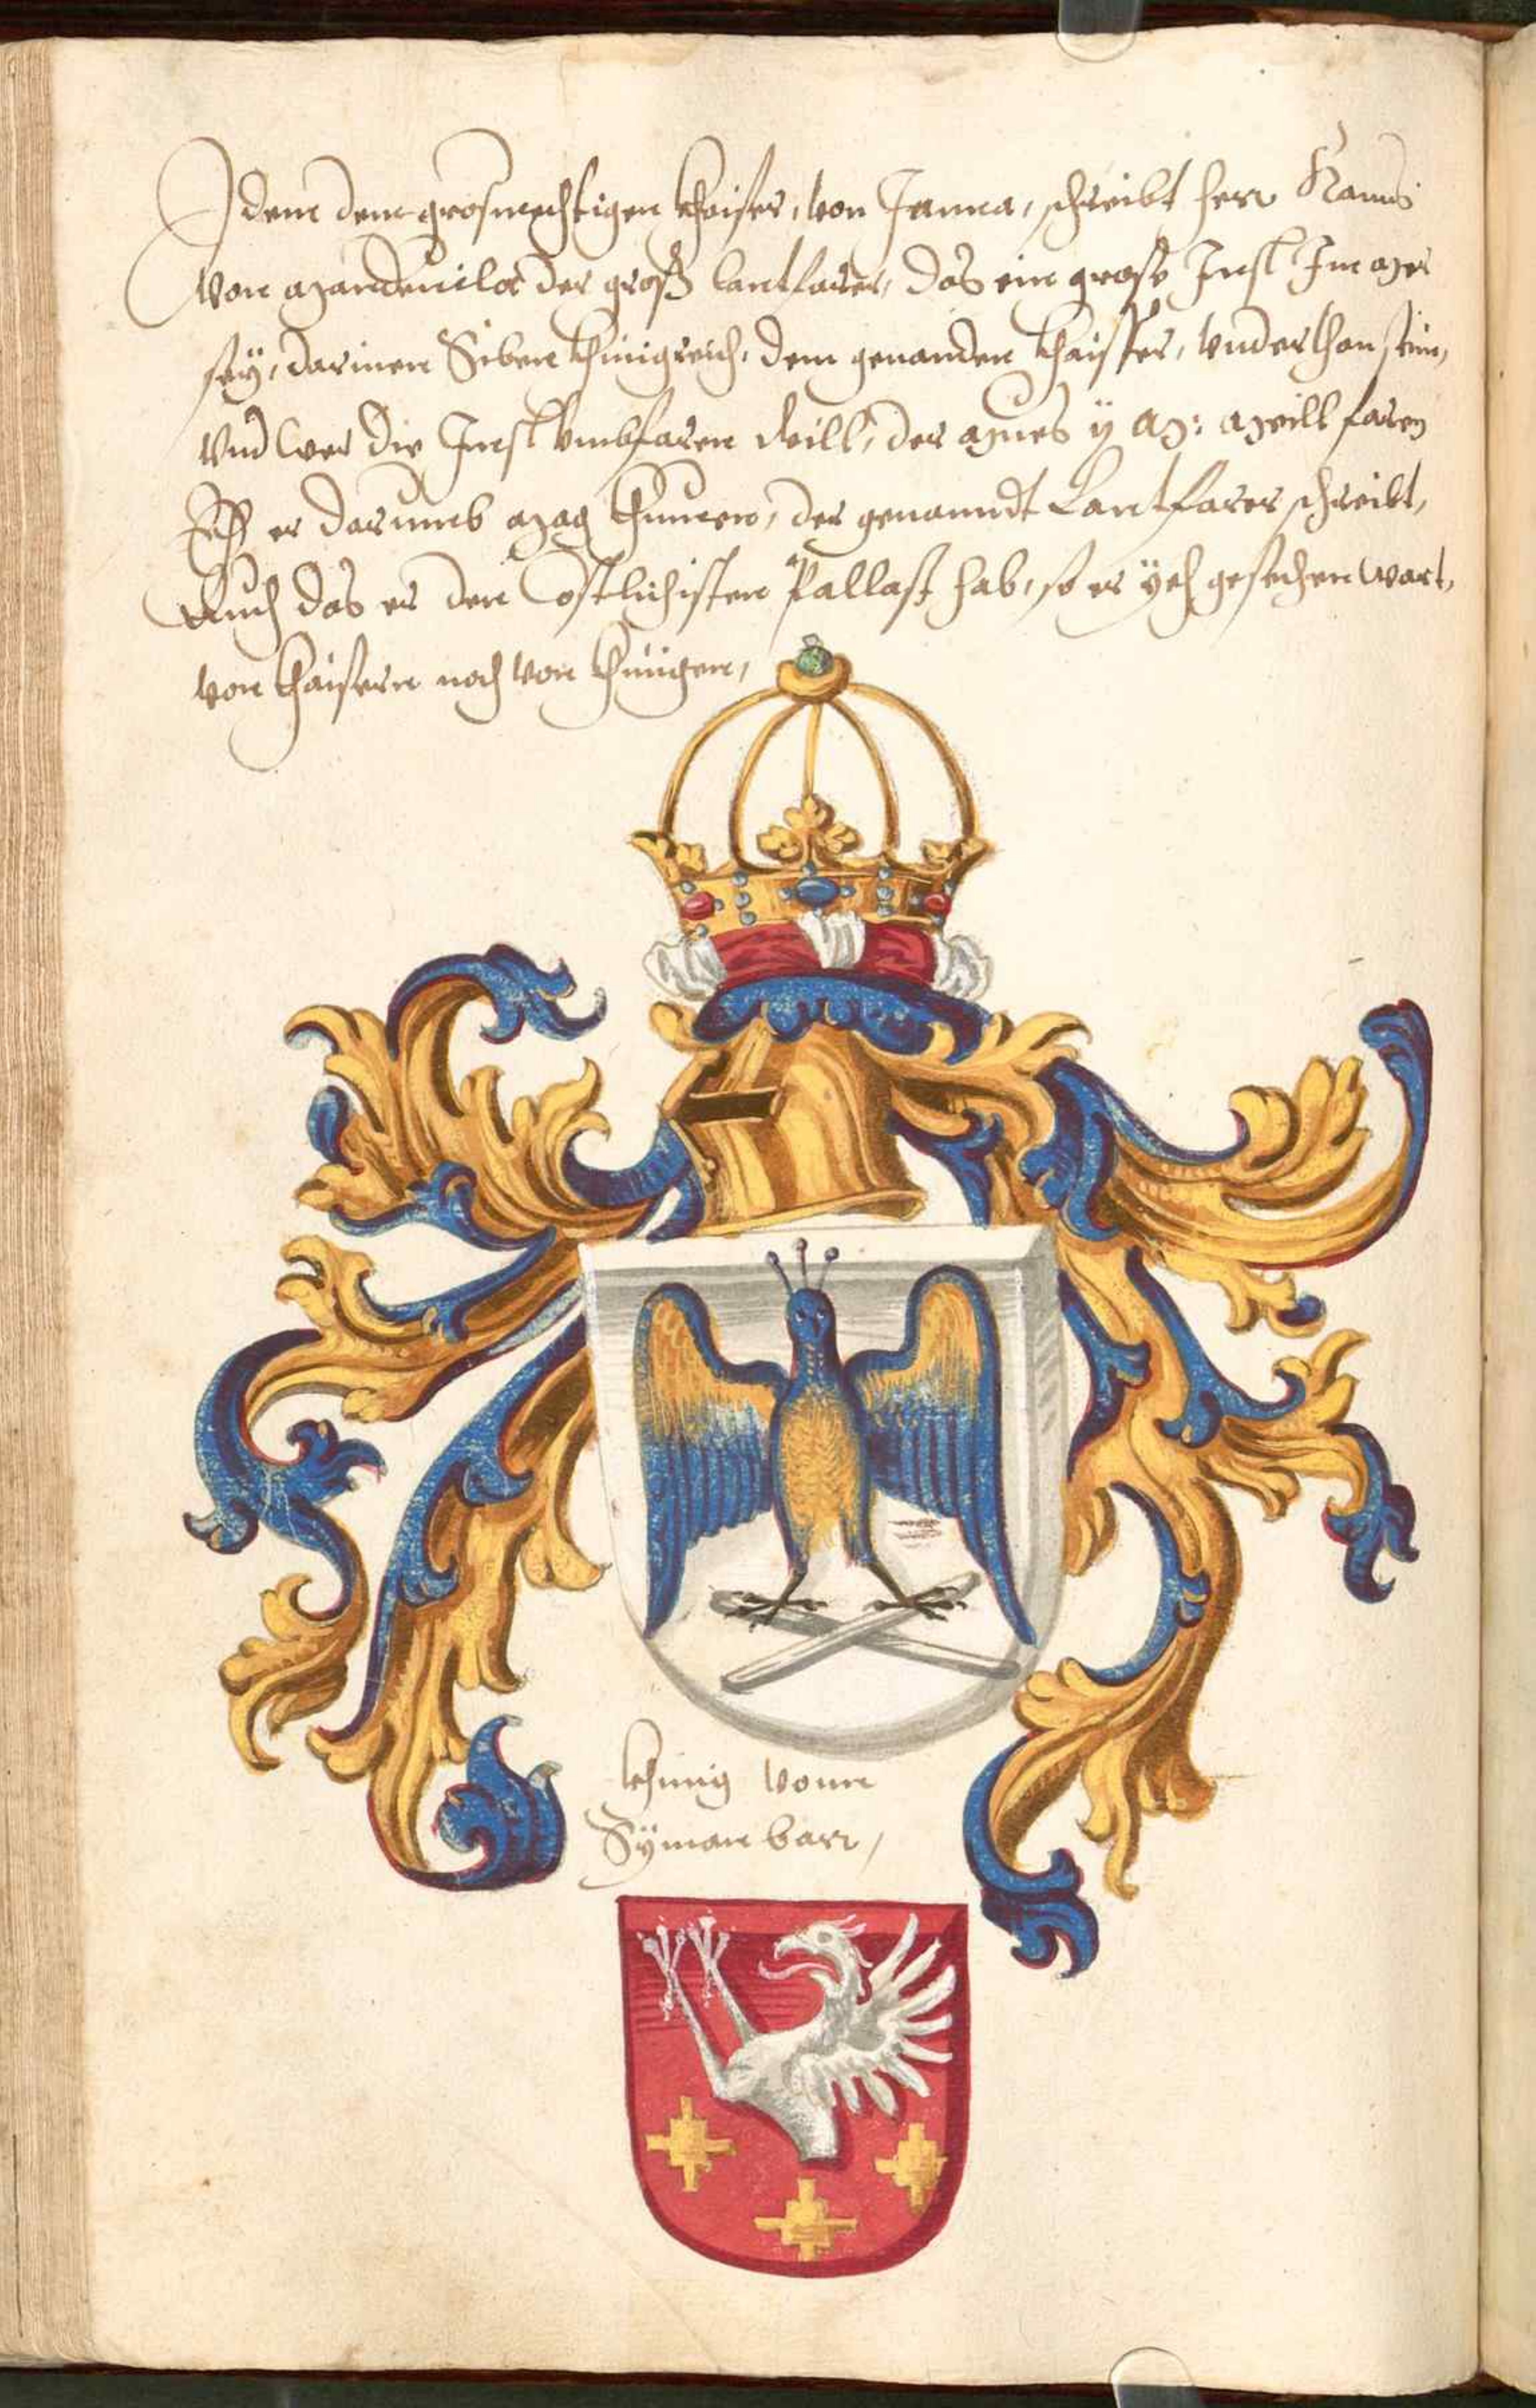 Idem dem grosmechtigen Khaiser, von Janna, schreibt herr Hanns
von Mandevila der groß lantfarer, das ein grose Insl Im Mer
sey, darinen Siben Khinigreich, dem genanden Khaisser, underthon sein,
Und wer die Insl umbfaren will, der mues ij M: Meill faren
Eh er darumb mag khumen, der genanndt Lantfarer schreibt,
Auch das er den Costlichisten Pallast hab, so er yeh gesechen wart,
von Khaisern noch von Khunigen,
khunig vonn
Symanbarr,